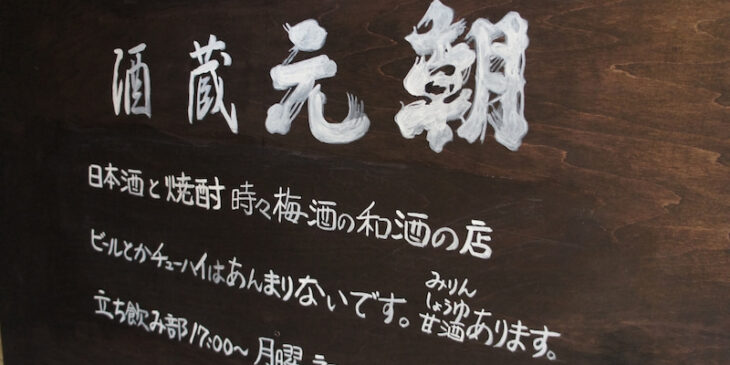 酒蔵 元朝
日本酒と焼酎 時々梅酒の和酒の店
ビールとかチューハイはあんまりないです。みりん しょうゆ 甘酒 あります。
立ち飲み部 17:00〜 月曜